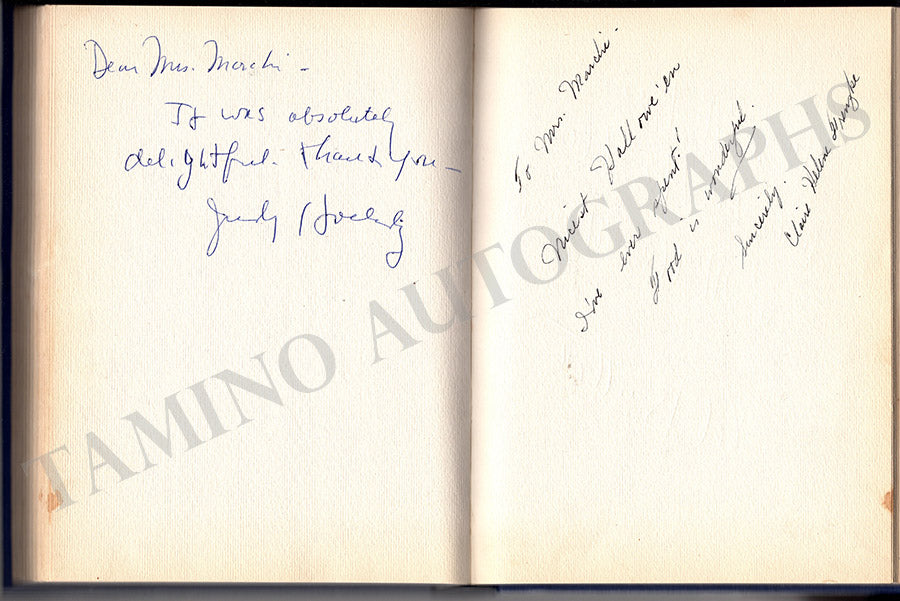 Dear Mrs. Marchi –
It was absolutely
delightful. Thank you –
Judy Holliday
To Mrs. Marchi –
Nicest Hallowe'en
I've ever spent!
Food is wonderful!
Sincerely,
Claire Helene
TAMINO AUTOGRAPHS